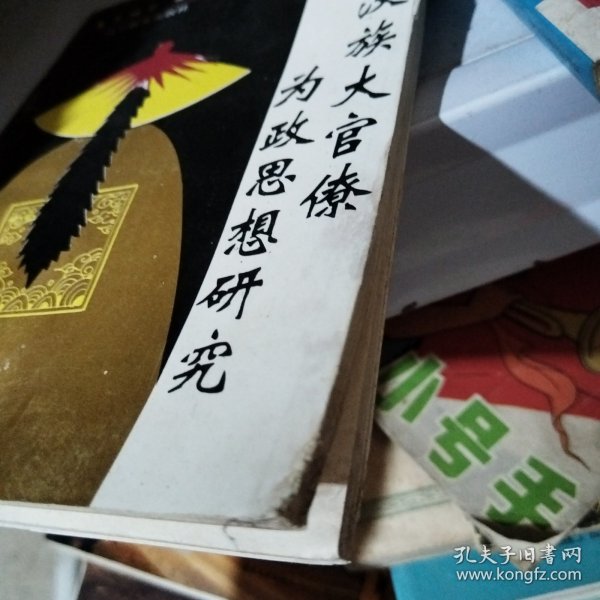 汉族大官僚
为政思想研究
小号手
孔夫子旧书网
www.kongfz.com